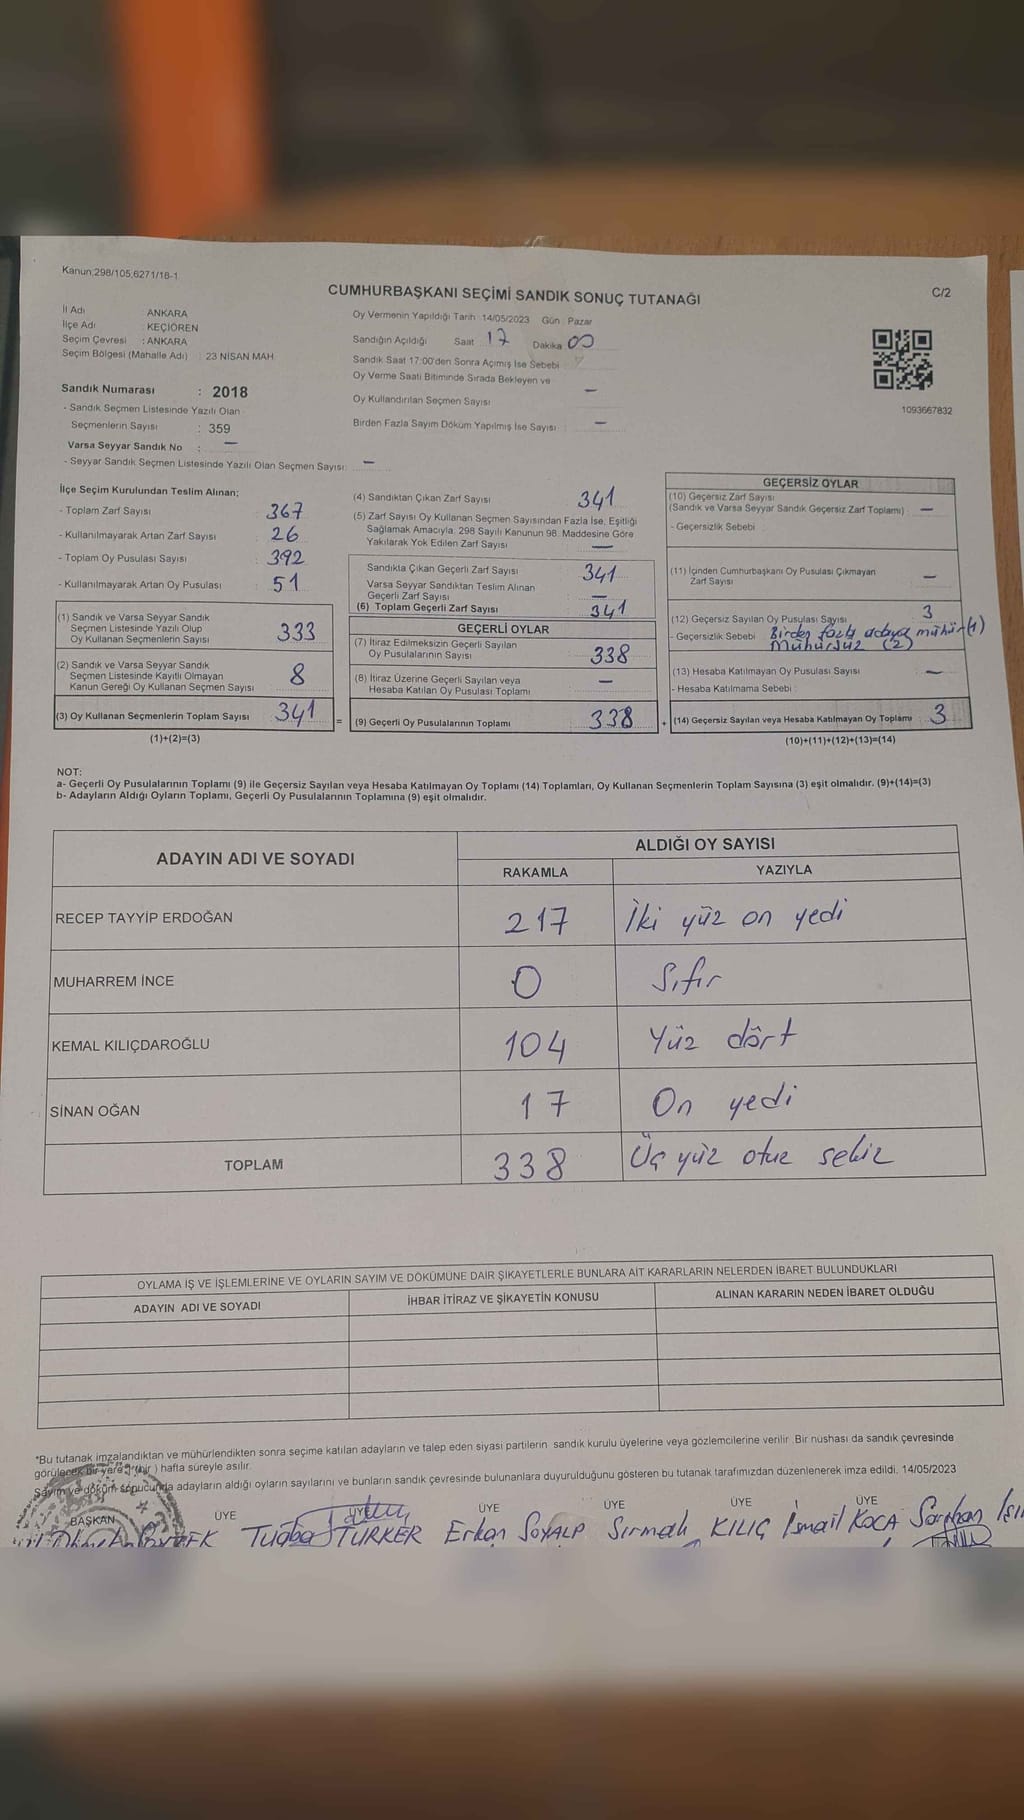 Kanun;298/105,6271/18-1
CUMHURBAŞKANI SEÇİMİ SANDIK SONUÇ TUTANAĞI
C/2
İl Adı : ANKARA
İlçe Adı : KEÇİÖREN
Seçim Çevresi : ANKARA
Seçim Bölgesi (Mahalle Adı) : 23 NİSAN MAH.
Sandık Numarası : 2018
- Sandık Seçmen Listesinde Yazılı Olan
Seçmenlerin Sayısı : 359
Varsa Seyyar Sandık No : —
- Seyyar Sandık Seçmen Listesinde Yazılı Olan Seçmen Sayısı: —
Oy Vermenin Yapıldığı Tarih : 14/05/2023 Gün : Pazar
Sandığın Açıldığı Saat 17 Dakika 00
Sandık Saat 17:00'den Sonra Açımış İse Sebebi
Oy Verme Saati Bitiminde Sırada Bekleyen ve
Oy Kullandırılan Seçmen Sayısı —
Birden Fazla Sayım Döküm Yapılmış İse Sayısı : —
1093667832
İlçe Seçim Kurulundan Teslim Alınan;
- Toplam Zarf Sayısı : 367
- Kullanılmayarak Artan Zarf Sayısı : 26
- Toplam Oy Pusulası Sayısı : 392
- Kullanılmayarak Artan Oy Pusulası : 51
(1) Sandık ve Varsa Seyyar Sandık
Seçmen Listesinde Yazılı Olup
Oy Kullanan Seçmenlerin Sayısı 333
(2) Sandık ve Varsa Seyyar Sandık
Seçmen Listesinde Kayıtlı Olmayan
Kanun Gereği Oy Kullanan Seçmen Sayısı 8
(3) Oy Kullanan Seçmenlerin Toplam Sayısı 341
(1)+(2)=(3)
=
(4) Sandıktan Çıkan Zarf Sayısı 341
(5) Zarf Sayısı Oy Kullanan Seçmen Sayısından Fazla İse, Eşitliği
Sağlamak Amacıyla, 298 Sayılı Kanunun 98. Maddesine Göre
Yakılarak Yok Edilen Zarf Sayısı —
Sandıkla Çıkan Geçerli Zarf Sayısı 341
Varsa Seyyar Sandıktan Teslim Alınan
Geçerli Zarf Sayısı —
(6) Toplam Geçerli Zarf Sayısı 341
GEÇERLİ OYLAR
(7) İtiraz Edilmeksizin Geçerli Sayılan
Oy Pusulalarının Sayısı 338
(8) İtiraz Üzerine Geçerli Sayılan veya
Hesaba Katılan Oy Pusulası Toplamı —
(9) Geçerli Oy Pusulalarının Toplamı 338
+
GEÇERSİZ OYLAR
(10) Geçersiz Zarf Sayısı
(Sandık ve Varsa Seyyar Sandık Geçersiz Zarf Toplamı) : —
- Geçersizlik Sebebi :
(11) İçinden Cumhurbaşkanı Oy Pusulası Çıkmayan
Zarf Sayısı —
(12) Geçersiz Sayılan Oy Pusulası Sayısı 3
- Geçersizlik Sebebi : Birden fazla adaya mühür (1)
Mühürsüz (2)
(13) Hesaba Katılmayan Oy Pusulası Sayısı —
- Hesaba Katılmama Sebebi :
(14) Geçersiz Sayılan veya Hesaba Katılmayan Oy Toplamı 3
(10)+(11)+(12)+(13)=(14)
NOT:
a- Geçerli Oy Pusulalarının Toplamı (9) ile Geçersiz Sayılan veya Hesaba Katılmayan Oy Toplamı (14) Toplamları, Oy Kullanan Seçmenlerin Toplam Sayısına (3) eşit olmalıdır. (9)+(14)=(3)
b- Adayların Aldığı Oyların Toplamı, Geçerli Oy Pusulalarının Toplamına (9) eşit olmalıdır.
ADAYIN ADI VE SOYADI ALDIĞI OY SAYISI
RAKAMLA YAZIYLA
RECEP TAYYİP ERDOĞAN 217 İki yüz on yedi
MUHARREM İNCE 0 Sıfır
KEMAL KILIÇDAROĞLU 104 Yüz dört
SİNAN OĞAN 17 On yedi
TOPLAM 338 Üç yüz otuz sekiz
OYLAMA İŞ VE İŞLEMLERİNE VE OYLARIN SAYIM VE DÖKÜMÜNE DAİR ŞİKAYETLERLE BUNLARA AİT KARARLARIN NELERDEN İBARET BULUNDUKLARI
ADAYIN ADI VE SOYADI İHBAR İTİRAZ VE ŞİKAYETİN KONUSU ALINAN KARARIN NEDEN İBARET OLDUĞU
*Bu tutanak imzalandıktan ve mühürlendikten sonra seçime katılan adayların ve talep eden siyasi partilerin sandık kurulu üyelerine veya gözlemcilerine verilir. Bir nüshası da sandık çevresinde
görülecek bir yere 1 (bir) hafta süreyle asılır.
Sayım ve döküm sonucunda adayların aldığı oyların sayılarını ve bunların sandık çevresinde bulunanlara duyurulduğunu gösteren bu tutanak tarafımızdan düzenlenerek imza edildi. 14/05/2023
BAŞKAN ÜYE ÜYE ÜYE ÜYE ÜYE ÜYE
Tuğba TÜRKER Erkan SOYALP Sırmalı KILIÇ İsmail KOCA